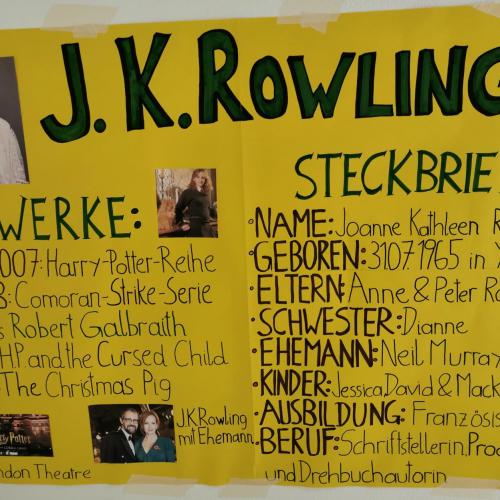 J.K.ROWLING
WERKE:
007: Harry-Potter-Reihe
3: Comoran-Strike-Serie
s Robert Galbraith
HP and the Cursed Child
The Christmas Pig
JKRowling
mit Ehemann
ndon Theatre
STECKBRIE
•NAME: Joanne Kathleen R
•GEBOREN: 31.07.1965 in
•ELTERN: Anne & Peter Ro
•SCHWESTER: Dianne
•EHEMANN: Neil Murray
•KINDER: Jessica, David & Mack
•AUSBILDUNG: Französis
•BERUF: Schriftstellerin, Prod
und Drehbuchautorin